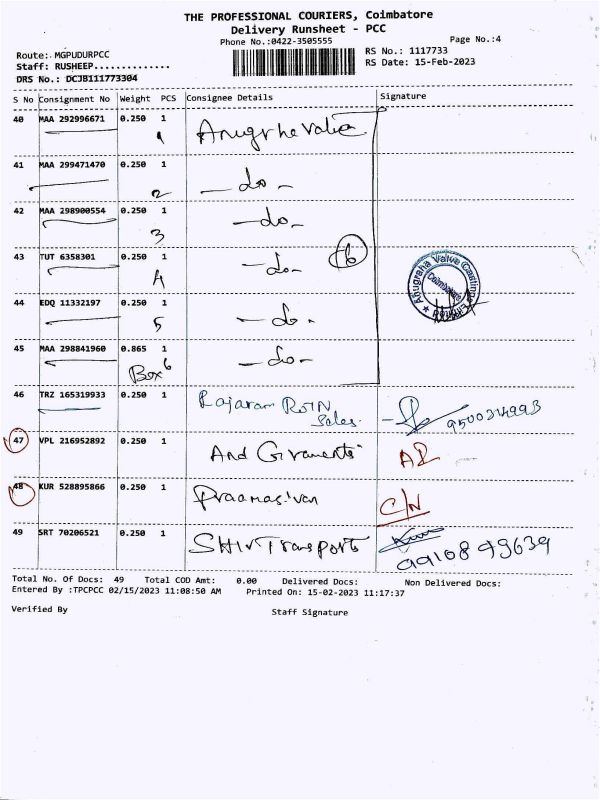 THE PROFESSIONAL COURIERS, Coimbatore
Delivery Runsheet - PCC
Phone No.:0422-3505555
Page No.:4
Route: MGPUDURPCC
RS No.: 1117733
Staff: RUSHEEP..............
RS Date: 15-Feb-2023
DRS No.: DCJB111773304
S No Consignment No Weight PCS Consignee Details Signature
40 MAA 292996671 0.250 1 Anugrha Valve
1
41 MAA 299471470 0.250 1 - do -
2
42 MAA 298900554 0.250 1 - do -
3
43 TUT 6358301 0.250 1 - do - 6
4
Anugraha Valve Castings Limited
Coimbatore
44 EDQ 11332197 0.250 1 - do -
5
45 MAA 298841960 0.865 1 - do -
Box 6
46 TRZ 165319933 0.250 1 Rajaram
Sales
47 VPL 216952892 0.250 1 And
48 KUR 528895866 0.250 1 C/N
49 SRT 70206521 0.250 1 SHIV Transports
9910899639
Total No. Of Docs: 49 Total COD Amt: 0.00 Delivered Docs: Non Delivered Docs:
Entered By :TPCPCC 02/15/2023 11:08:50 AM Printed On: 15-02-2023 11:17:37
Verified By Staff Signature